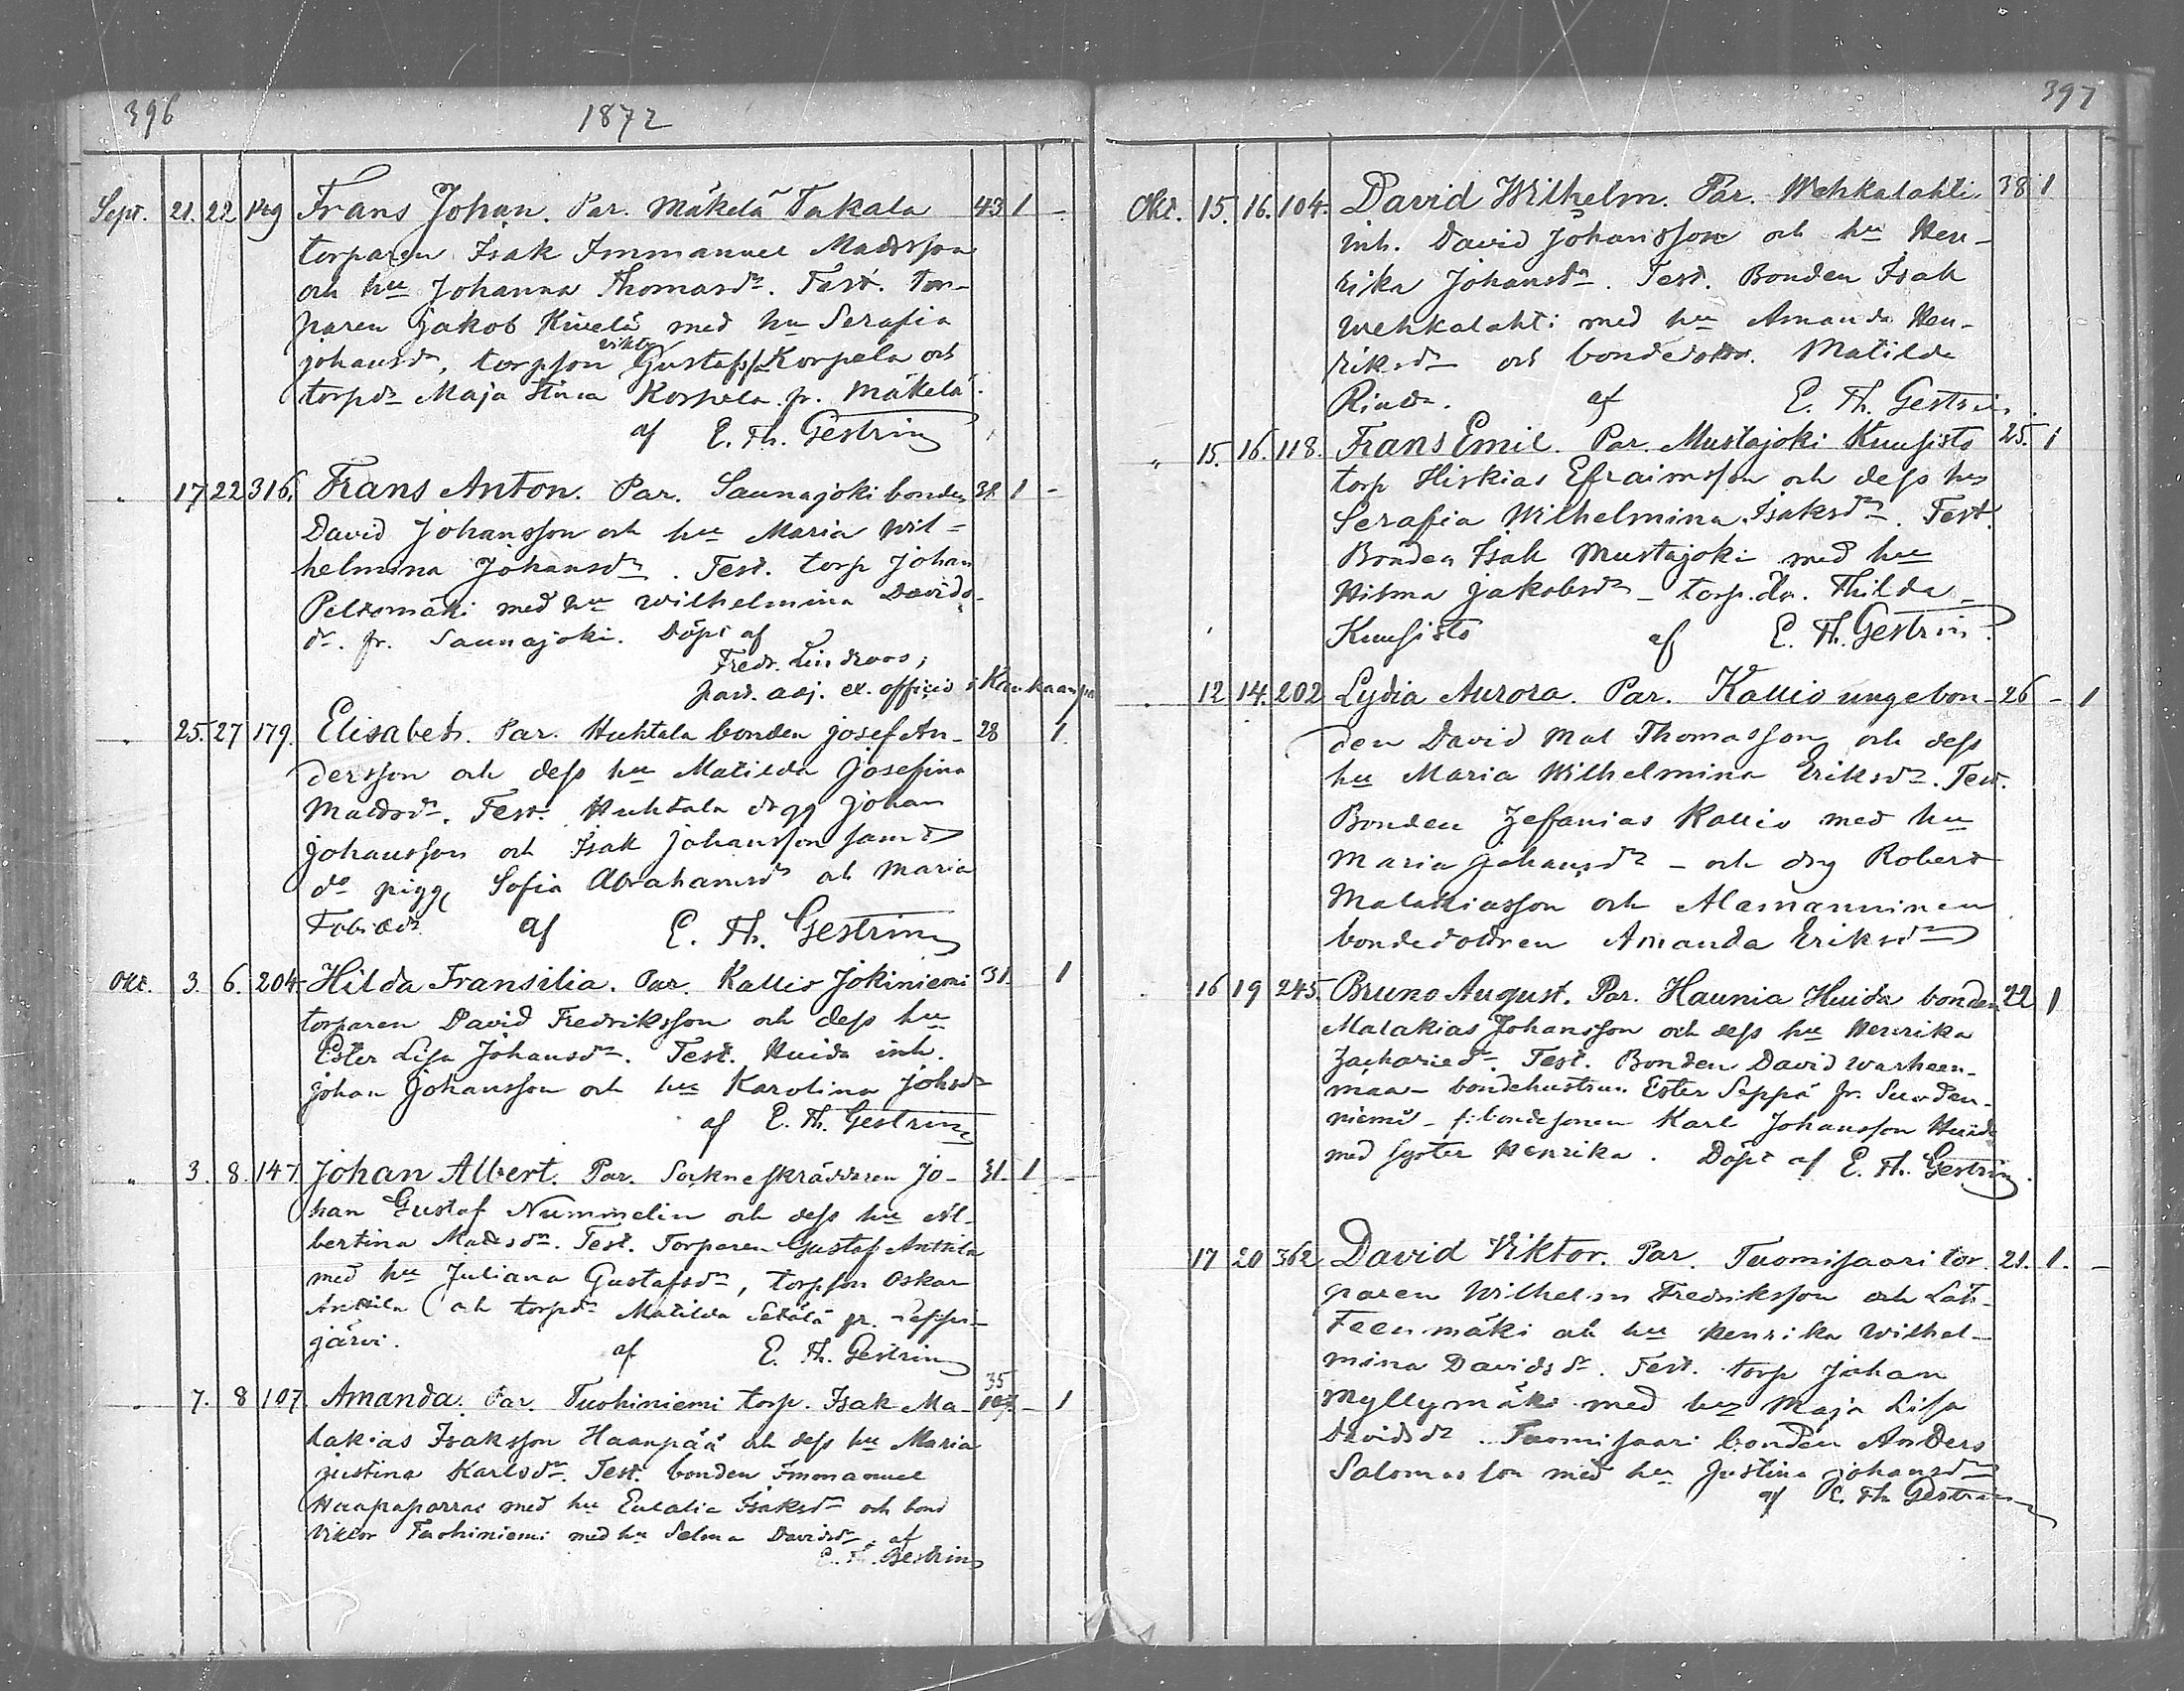 396
1872
Sept. 21. 22 149 Frans Johan. Par. Mäkelä Takala 43 1 -
torparen Isak Immanuel Madsson
och hu Johanna Thomasdr. Test. tor-
paren Jakob Kivelä med hu Serafia
Johansdr, torpson Viktor Gustafsson Korpela och
torpdr Maja Stina Korpela fr. Mäkelä.
af E. Th. Gestrin
" 17 22 316. Frans Anton. Par. Saunajoki bonden 38 1 -
David Johansson och hu Maria Wil-
helmina Johansdr. Test. torp Johan
Peltomäki med hu Wilhelmina Davids-
dr. fr. Saunajoki. Döpt af
Fredr. Lindroos,
past. adj. ex. officio i Kankaanpä
" 25. 27 179. Elisabet. Par. Huhtala bonden Josef An- 28 1.
dersson och dess hu Matilda Josefina
Madsdr. Test. Huhtala drgg Johan
Johansson och Isak Johansson samt
do pigg Sofia Abrahamsdr och Maria
Tobiædr. af E. Th. Gestrin
Okt. 3. 6. 204. Hilda Fransilia. Par. Kallio Jokiniemi 31. 1
torparen David Fredriksson och dess hu
Ester Lisa Johansdr. Test. Huida inh.
Johan Johansson och hu Karolina Johsdr
af E. Th. Gestrin
" 3. 8. 147. Johan Albert. Par. Sockneskräddaren Jo- 31. 1 -
han Gustaf Nummelin och dess hu Al-
bertina Madsdr. Test. Torparen Gustaf Anttila
med hu Juliana Gustafsdr, torpson Oskar
Anttila och torpdr Matilda Setälä fr. Leppi-
järvi. af E. Th. Gestrin
" 7. 8 107. Amanda. Par. Tuohiniemi torp. Isak Ma- 35 107. - 1
lakias Isaksson Haanpää och dess hu Maria
Justina Karlsdr. Test. bonden Immanuel
Haapaparras med hu Eulalia Isaksdr och bond
Viktor Tuohiniemi med hu Selma Davidsdr. af
E. Th. Gestrin
397
Okt. 15. 16. 104. David Wilhelm. Par. Wehkalahti 38 1
inh. David Johansson och hu Hen-
rika Johansdr. Test. Bonden Isak
Wehkalahti med hu Amanda Hen-
riksdr och bondedottr. Matilda
af E. Th. Gestrin.
" 15. 16. 118. Frans Emil. Par. Mustajoki Kuusisto 25. 1
torp Hiskias Efraimsson och dess hu
Serafia Wilhelmina Isaksdr. Test.
Bonden Isak Mustajoki med hu
Hilma Jakobsdr - torp.dr. Thilda
Kuusisto af E. Th. Gestrin.
" 12 14. 202 Lydia Aurora. Par. Kallio ungebon- 26 - 1
den David Mat Thomasson och dess
hu Maria Wilhelmina Eriksdr. Test.
Bonden Zefanias Kallio med hu
Maria Johansdr - och drg Robert
Malakiasson och Alamanninen
bondedottren Amanda Eriksdr
16 19 245. Bruno August. Par. Haunia Huida bonden 22 1
Malakias Johansson och dess hu Henrika
Zachariedr. Test. Bonden David Warheen-
maa - bondehustrun Ester Seppä fr. Suoden-
niemi - f. bondesonen Karl Johansson Huida
med syster Henrika. Döpt af E. Th. Gestrin.
17 20 362 David Viktor. Par. Tuomisaari tor- 21. 1. -
paren Wilhelm Fredriksson och Lät-
teenmäki och hu Henrika Wilhel-
mina Davidsdr. Test. torp Johan
Myllymäki med hu Maja Lisa
Davidsdr. Tuomisaari bonden Anders
Salomosson med hu Justina Johansdr
af E. Th Gestrin